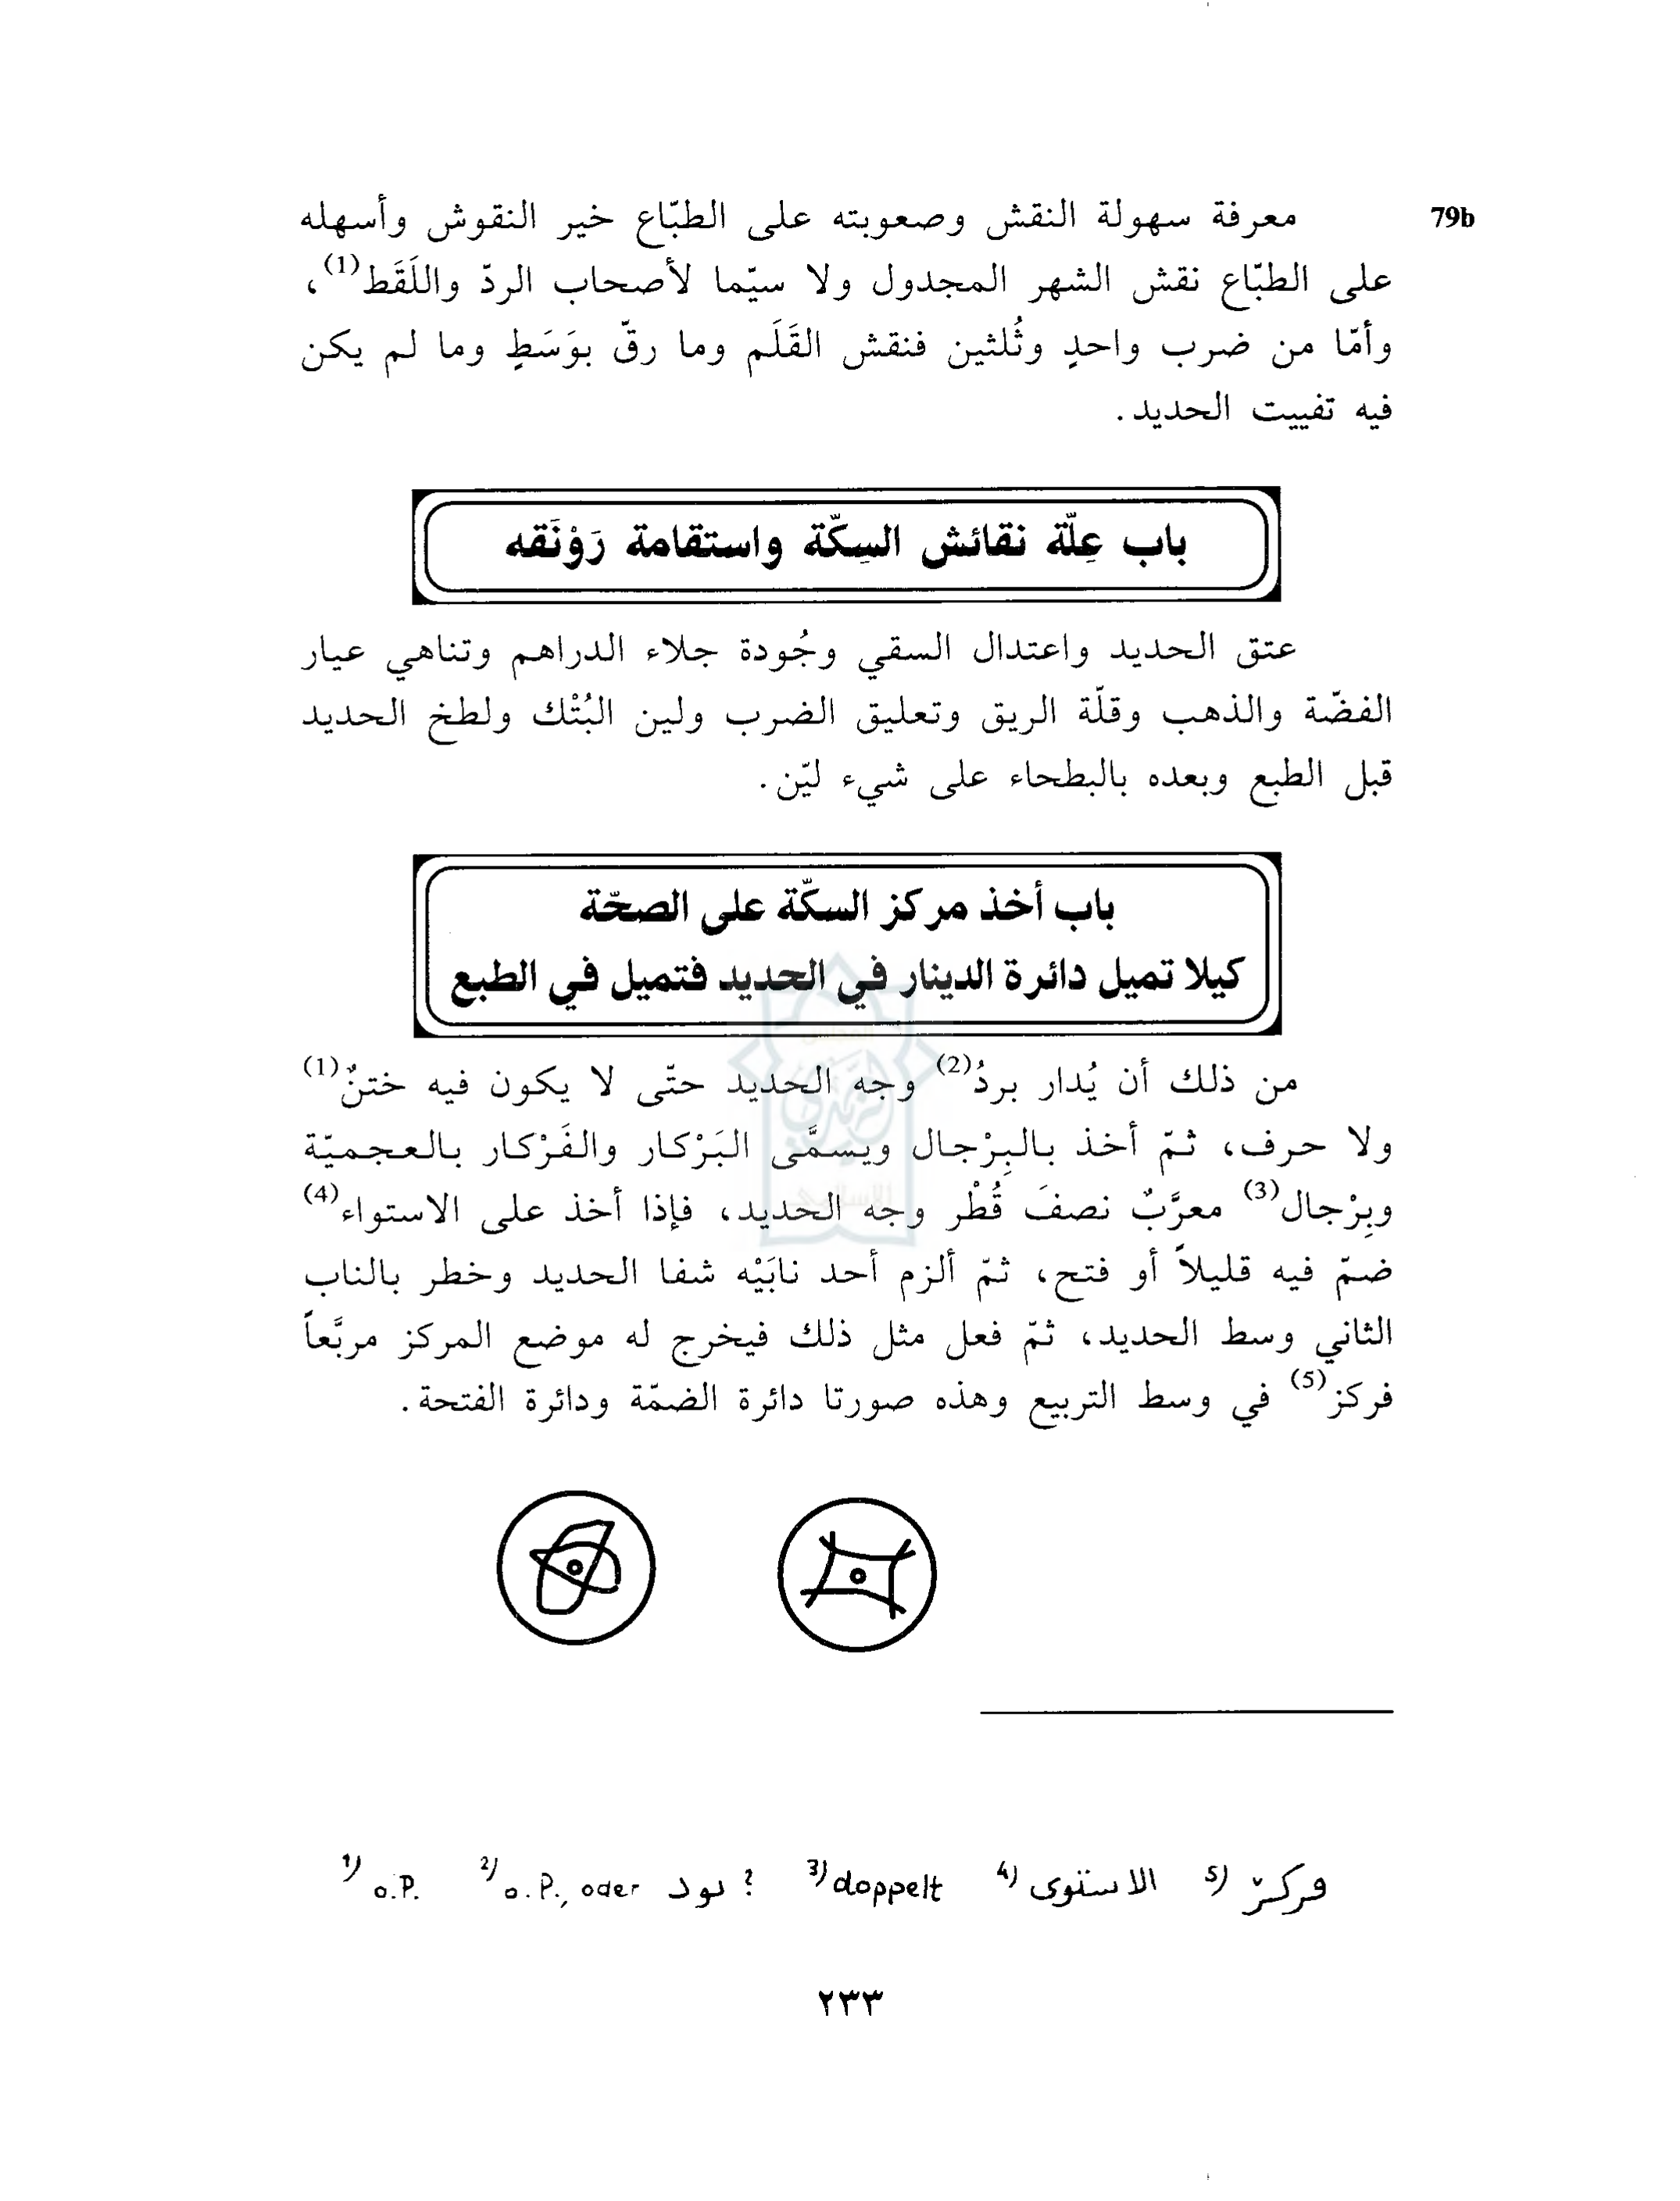 79b
معرفة سهولة النقش وصعوبته على الطبّاع خير النقوش وأسهله
على الطبّاع نقش الشهر المجدول ولا سيّما لأصحاب الردّ واللَقَط(1)،
وأمّا من ضرب واحدٍ وثُلثين فنقش القَلَم وما رقّ بوَسَطٍ وما لم يكن
فيه تفييت الحديد.
باب عِلّة نقائش السِكّة واستقامة رَوْنَقه
عتق الحديد واعتدال السقي وجُودة جلاء الدراهم وتناهي عيار
الفضّة والذهب وقلّة الريق وتعليق الضرب ولين البُتْك ولطخ الحديد
قبل الطبع وبعده بالبطحاء على شيء ليّن.
باب أخذ مركز السكّة على الصحّة
كيلا تميل دائرة الدينار في الحديد فتميل في الطبع
من ذلك أن يُدار بردُ(2) وجه الحديد حتّى لا يكون فيه ختنٌ(1)
ولا حرف، ثمّ أخذ بالبِرْجال ويسمَّى البَرْكار والفَرْكار بالعجميّة
وبِرْجال(3) معرَّبٌ نصفَ قُطْر وجه الحديد، فإذا أخذ على الاستواء(4)
ضمّ فيه قليلاً أو فتح، ثمّ ألزم أحد نابَيْه شفا الحديد وخطر بالناب
الثاني وسط الحديد، ثمّ فعل مثل ذلك فيخرج له موضع المركز مربَّعاً
فركز(5) في وسط التربيع وهذه صورتا دائرة الضمّة ودائرة الفتحة.
1) o.P. 2) o.P., oder نود ? 3) doppelt 4) الاستوى 5) فركّز
٢٣٣